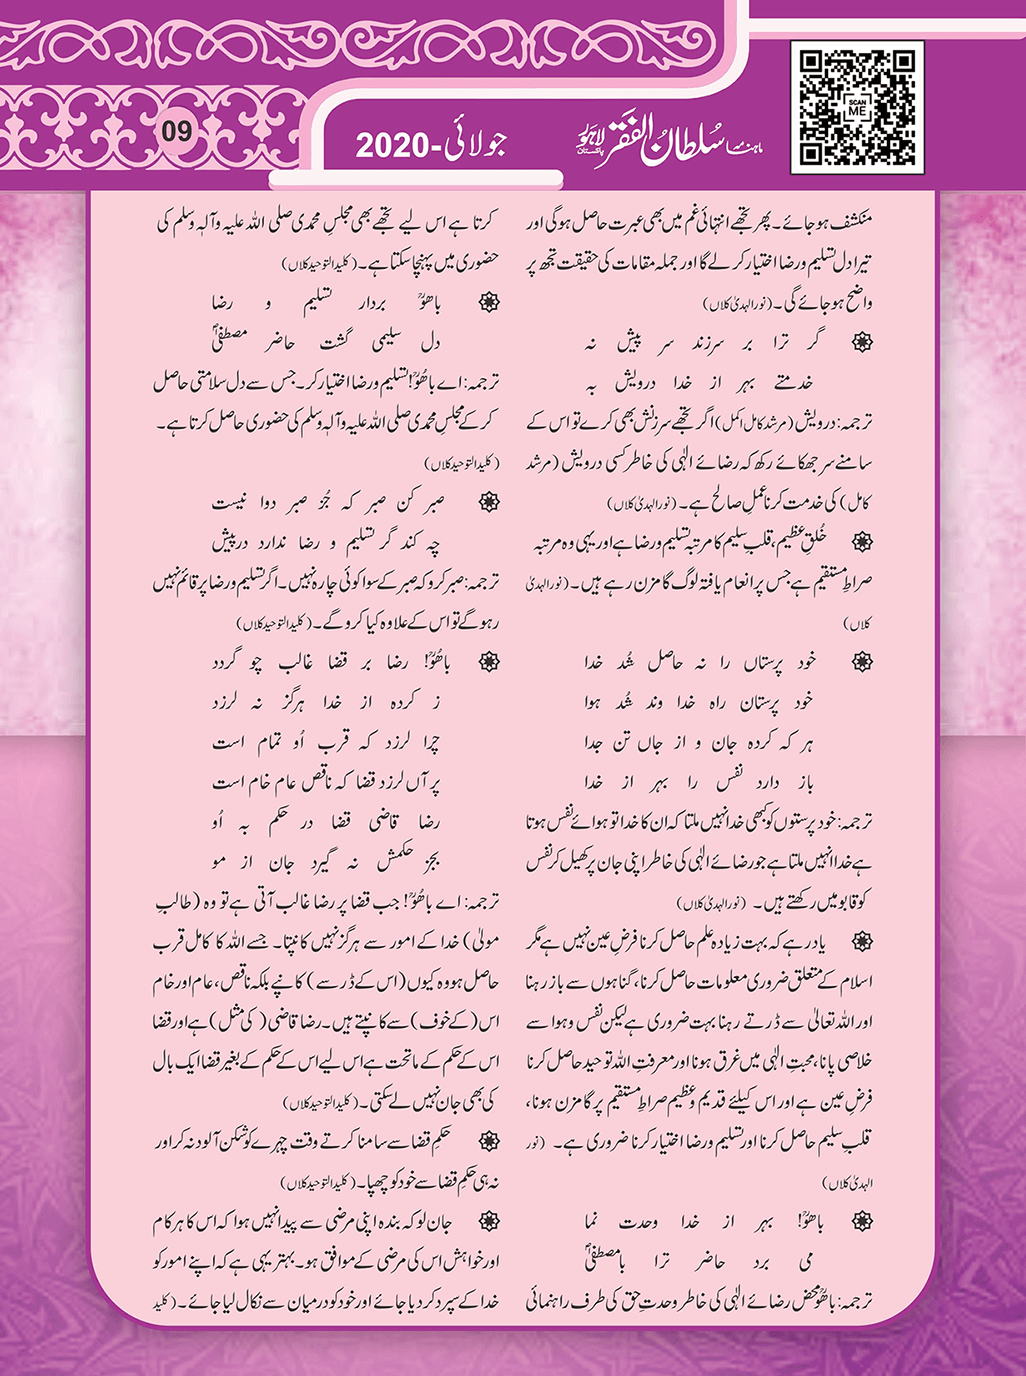 09
جولائی-2020
ماہنامہ سُلطان الفَقر لاہور پاکستان
SCAN
ME
منکشف ہو جائے۔ پھر تجھے انتہائی غم میں بھی عبرت حاصل ہوگی اور
تیرا دل تسلیم و رضا اختیار کر لے گا اور جملہ مقامات کی حقیقت تجھ پر
واضح ہو جائے گی۔ (نور الہدیٰ کلاں)
گر ترا بر سرزند سر پیش نہ
خدمتے بہر از خدا درویش بہ
ترجمہ: درویش (مرشد کامل اکمل) اگر تجھے سرزنش بھی کرے تو اس کے
سامنے سر جھکائے رکھ کہ رضائے الٰہی کی خاطر کسی درویش (مرشد
کامل) کی خدمت کرنا عملِ صالح ہے۔ (نور الہدیٰ کلاں)
خُلقِ عظیم، قلبِ سلیم کا مرتبہ تسلیم و رضا ہے اور یہی وہ مرتبہ
صراطِ مستقیم ہے جس پر انعام یافتہ لوگ گامزن رہے ہیں۔ (نور الہدیٰ
کلاں)
خود پرستاں را نہ حاصل شُد خدا
خود پرستان راہ خدا وند شُد ہوا
ہر کہ کردہ جان و از جاں تن جدا
باز دارد نفس را بہر از خدا
ترجمہ: خود پرستوں کو کبھی خدا نہیں ملتا کہ ان کا خدا تو ہوائے نفس ہوتا
ہے خدا انہیں ملتا ہے جو رضائے الٰہی کی خاطر اپنی جان پر کھیل کر نفس
کو قابو میں رکھتے ہیں۔ (نور الہدیٰ کلاں)
یاد رہے کہ بہت زیادہ علم حاصل کرنا فرضِ عین نہیں ہے مگر
اسلام کے متعلق ضروری معلومات حاصل کرنا، گناہوں سے باز رہنا
اور اللہ تعالیٰ سے ڈرتے رہنا بہت ضروری ہے لیکن نفس و ہوا سے
خلاصی پانا، محبتِ الٰہی میں غرق ہونا اور معرفتِ اللہ توحید حاصل کرنا
فرضِ عین ہے اور اس کیلئے قدیم و عظیم صراطِ مستقیم پر گامزن ہونا،
قلبِ سلیم حاصل کرنا اور تسلیم و رضا اختیار کرنا ضروری ہے۔ (نور
الہدیٰ کلاں)
باھوؒ! بہر از خدا وحدت نما
می برد حاضر ترا بامصطفیٰؐ
ترجمہ: باھوؒ محض رضائے الٰہی کی خاطر وحدتِ حق کی طرف راہنمائی
کرتا ہے اس لیے تجھے بھی مجلسِ محمدی صلی اللہ علیہ وآلہٖ وسلم کی
حضوری میں پہنچا سکتا ہے۔ (کلید التوحید کلاں)
باھوؒ بردار تسلیم و رضا
دل سلیمی گشت حاضر مصطفیٰؐ
ترجمہ: اے باھُوؒ! تسلیم و رضا اختیار کر۔ جس سے دل سلامتی حاصل
کر کے مجلسِ محمدی صلی اللہ علیہ وآلہٖ وسلم کی حضوری حاصل کرتا ہے۔
(کلید التوحید کلاں)
صبر کن صبر کہ جُز صبر دوا نیست
چہ کند گر تسلیم و رضا ندارد درپیش
ترجمہ: صبر کرو کہ صبر کے سوا کوئی چارہ نہیں۔ اگر تسلیم و رضا پر قائم نہیں
رہو گے تو اس کے علاوہ کیا کرو گے۔ (کلید التوحید کلاں)
باھُوؒ! رضا بر قضا غالب چو گردد
ز کردہ از خدا ہرگز نہ لرزد
چرا لرزد کہ قرب اُو تمام است
پر آں لرزد قضا کہ ناقص عام خام است
رضا قاضی قضا در حکم بہ اُو
بجز حکمش نہ گیرد جان از مو
ترجمہ: اے باھُوؒ! جب قضا پر رضا غالب آتی ہے تو وہ (طالبِ
مولیٰ) خدا کے امور سے ہرگز نہیں کانپتا۔ جسے اللہ کا کامل قرب
حاصل ہو وہ کیوں (اس کے ڈر سے) کانپے بلکہ ناقص، عام اور خام
اس (کے خوف) سے کانپتے ہیں۔ رضا قاضی (کی مثل) ہے اور قضا
اس کے حکم کے ماتحت ہے اس لیے اس کے حکم کے بغیر قضا ایک بال
کی بھی جان نہیں لے سکتی۔ (کلید التوحید کلاں)
حکمِ قضا سے سامنا کرتے وقت چہرے کو شکن آلود نہ کر اور
نہ ہی حکمِ قضا سے خود کو چھپا۔ (کلید التوحید کلاں)
جان لو کہ بندہ اپنی مرضی سے پیدا نہیں ہوا کہ اس کا ہر کام
اور خواہش اس کی مرضی کے موافق ہو۔ بہتر یہی ہے کہ اپنے امور کو
خدا کے سپرد کر دیا جائے اور خود کو درمیان سے نکال لیا جائے۔ (کلید